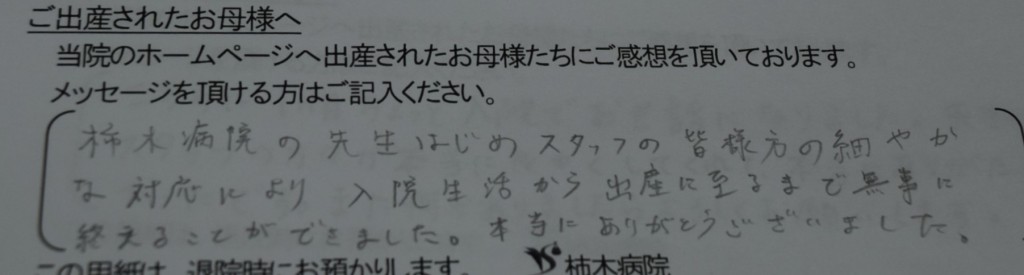 ご出産されたお母様へ
当院のホームページへ出産されたお母様たちにご感想を頂いております。
メッセージを頂ける方はご記入ください。
柿木病院の先生はじめスタッフの皆様方の細やか
な対応により入院生活から出産に至るまで無事に
終えることができました。本当にありがとうございました。
この用紙は、退院時にお預かりします。 柿木病院